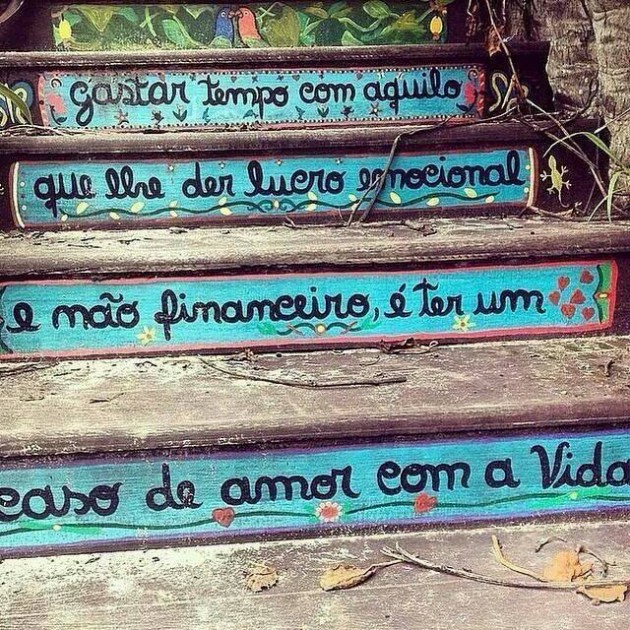 gastar tempo com aquilo
que lhe der lucro emocional
e não financeiro, é ter um
caso de amor com a Vida